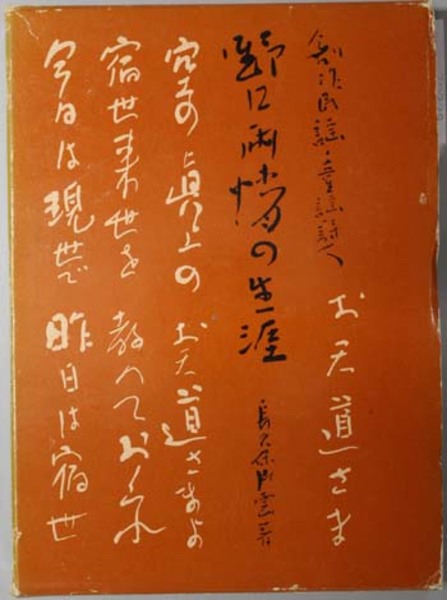 創作民謡・童謡詩人
お天道さま
野口雨情の生涯
長久保片雲著
空の眞上の お天道さまよ
宿世来世を 教へておくれ
今日は現世で 昨日は宿世